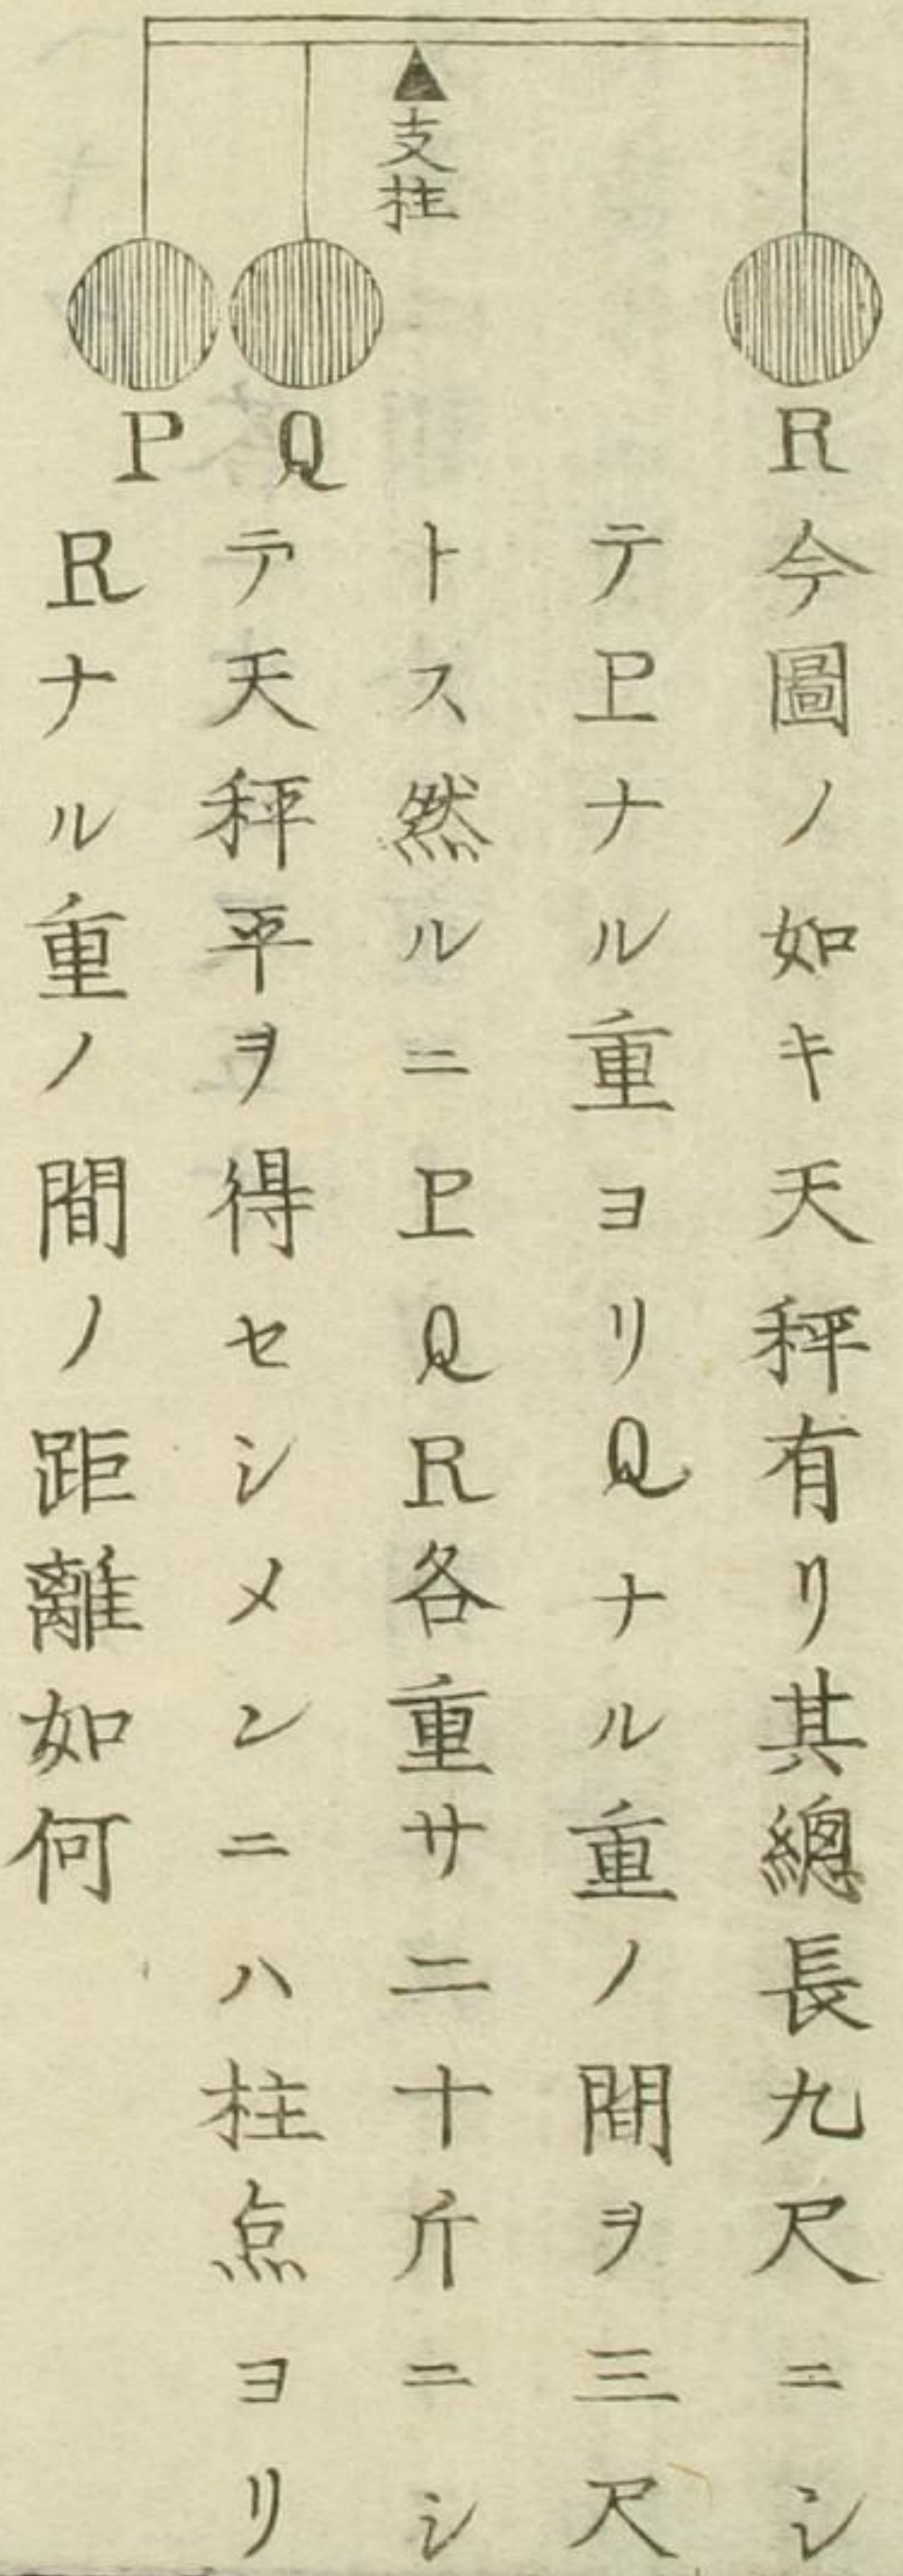 支柱
P Q R
今圖ノ如キ天秤有リ其總長九尺ニシ
テPナル重ヨリQナル重ノ間ヲ三尺
トス然ルニPQR各重サ二十斤ニシ
テ天秤平ヲ得セシメンニハ柱点ヨリ
Rナル重ノ間ノ距離如何